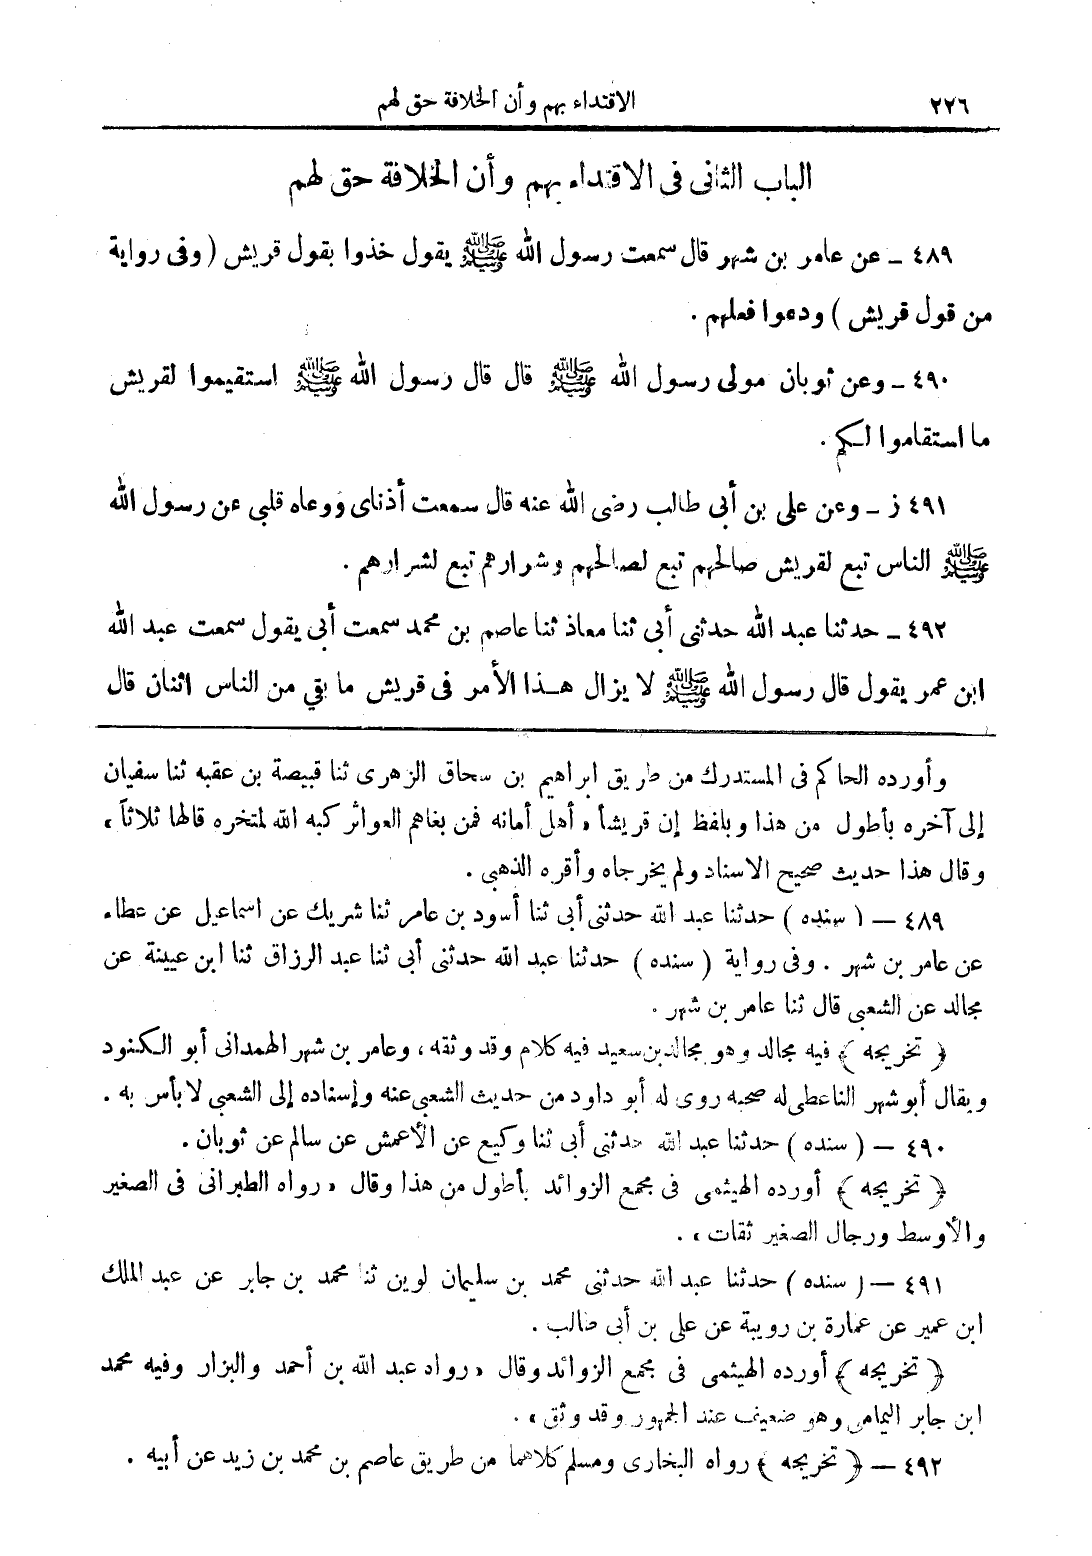 ٢٢٦ الاقتداء بهم وأن الخلافة حق لهم
الباب الثانى فى الاقتداء بهم وأن الخلافة حق لهم
٤٨٩ ـ عن عامر بن شهر قال سمعت رسول الله ﷺ يقول خذوا بقول قريش ( وفى رواية
من قول قريش ) ودعوا فعلهم .
٤٩٠ ـ وعن ثوبان مولى رسول الله ﷺ قال قال رسول الله ﷺ استقيموا لقريش
ما استقاموا لكم .
٤٩١ ز ـ وعن على بن أبى طالب رضى الله عنه قال سمعت أذناى ووعاه قلبى عن رسول الله
ﷺ الناس تبع لقريش صالحهم تبع لصالحهم وشرارهم تبع لشرارهم .
٤٩٢ ـ حدثنا عبد الله حدثنى أبى ثنا معاذ ثنا عاصم بن محمد سمعت أبى يقول سمعت عبد الله
ابن عمر يقول قال رسول الله ﷺ لا يزال هـذا الأمر فى قريش ما بقي من الناس اثنان قال
وأورده الحاكم فى المستدرك من طريق ابراهيم بن سحاق الزهرى ثنا قبيصة بن عقبه ثنا سفيان
إلى آخره بأطول من هذا وبلفظ إن قريشاً ، أهل أمانه فمن بغاهم العواثر كبه الله لمتخره قالها ثلاثاً ،
وقال هذا حديث صحيح الاسناد ولم يخرجاه وأقره الذهبى .
٤٨٩ – ( سنده ) حدثنا عبد الله حدثنى أبى ثنا أسود بن عامر ثنا شريك عن اسماعيل عن عطاء
عن عامر بن شهر . وفى رواية ( سنده ) حدثنا عبد الله حدثنى أبى ثنا عبد الرزاق ثنا ابن عيينة عن
مجالد عن الشعبى قال ثنا عامر بن شهر .
﴿ تخريجه ﴾ فيه مجالد وهو مجالد بن سعيد فيه كلام وقد وثقه ، وعامر بن شهر الهمدانى أبو الكنود
ويقال أبو شهر الناعطى له صحبه روى له أبو داود من حديث الشعبى عنه وإسناده إلى الشعبى لا بأس به .
٤٩٠ – ( سنده ) حدثنا عبد الله حدثنى أبى ثنا وكيع عن الأعمش عن سالم عن ثوبان .
﴿ تخريجه ﴾ أورده الهيثمى فى مجمع الزوائد بأطول من هذا وقال « رواه الطبرانى فى الصغير
والأوسط ورجال الصغير ثقات » .
٤٩١ – ( سنده ) حدثنا عبد الله حدثنى محمد بن سليمان لوين ثنا محمد بن جابر عن عبد الملك
ابن عمير عن عمارة بن رويبة عن على بن أبى طالب .
﴿ تخريجه ﴾ أورده الهيثمى فى مجمع الزوائد وقال « رواه عبد الله بن أحمد والبزار وفيه محمد
ابن جابر اليمامى وهو ضعيف عند الجمهور وقد وثق » .
٤٩٢ – ﴿ تخريجه ﴾ رواه البخارى ومسلم كلاهما من طريق عاصم بن محمد بن زيد عن أبيه .